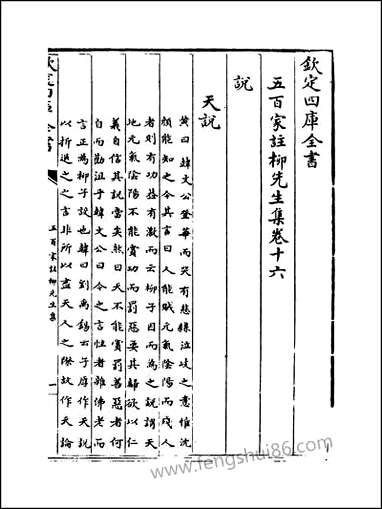 欽定四庫全書
五百家註柳先生集卷十六
說
天說
黄曰韓文公登華而哭有悲絲泣岐之意惟沈
顔能知之今其言曰人能賊元氣陰陽而殘人
者則有功蓋有激而云柳子因而為之說謂天
地元氣陰陽不能賞功而罰惡要其歸欲以仁
義自信其說當矣然曰天不能賞罰善惡者何
自而勸沮乎韓文公曰今之言性者雜佛老而
言正為柳子設也韓曰劉禹錫云子厚作天說
以折退之之言非所以盡天人之際故作天論
五百家註柳先生集
一
www.fengshui86.com